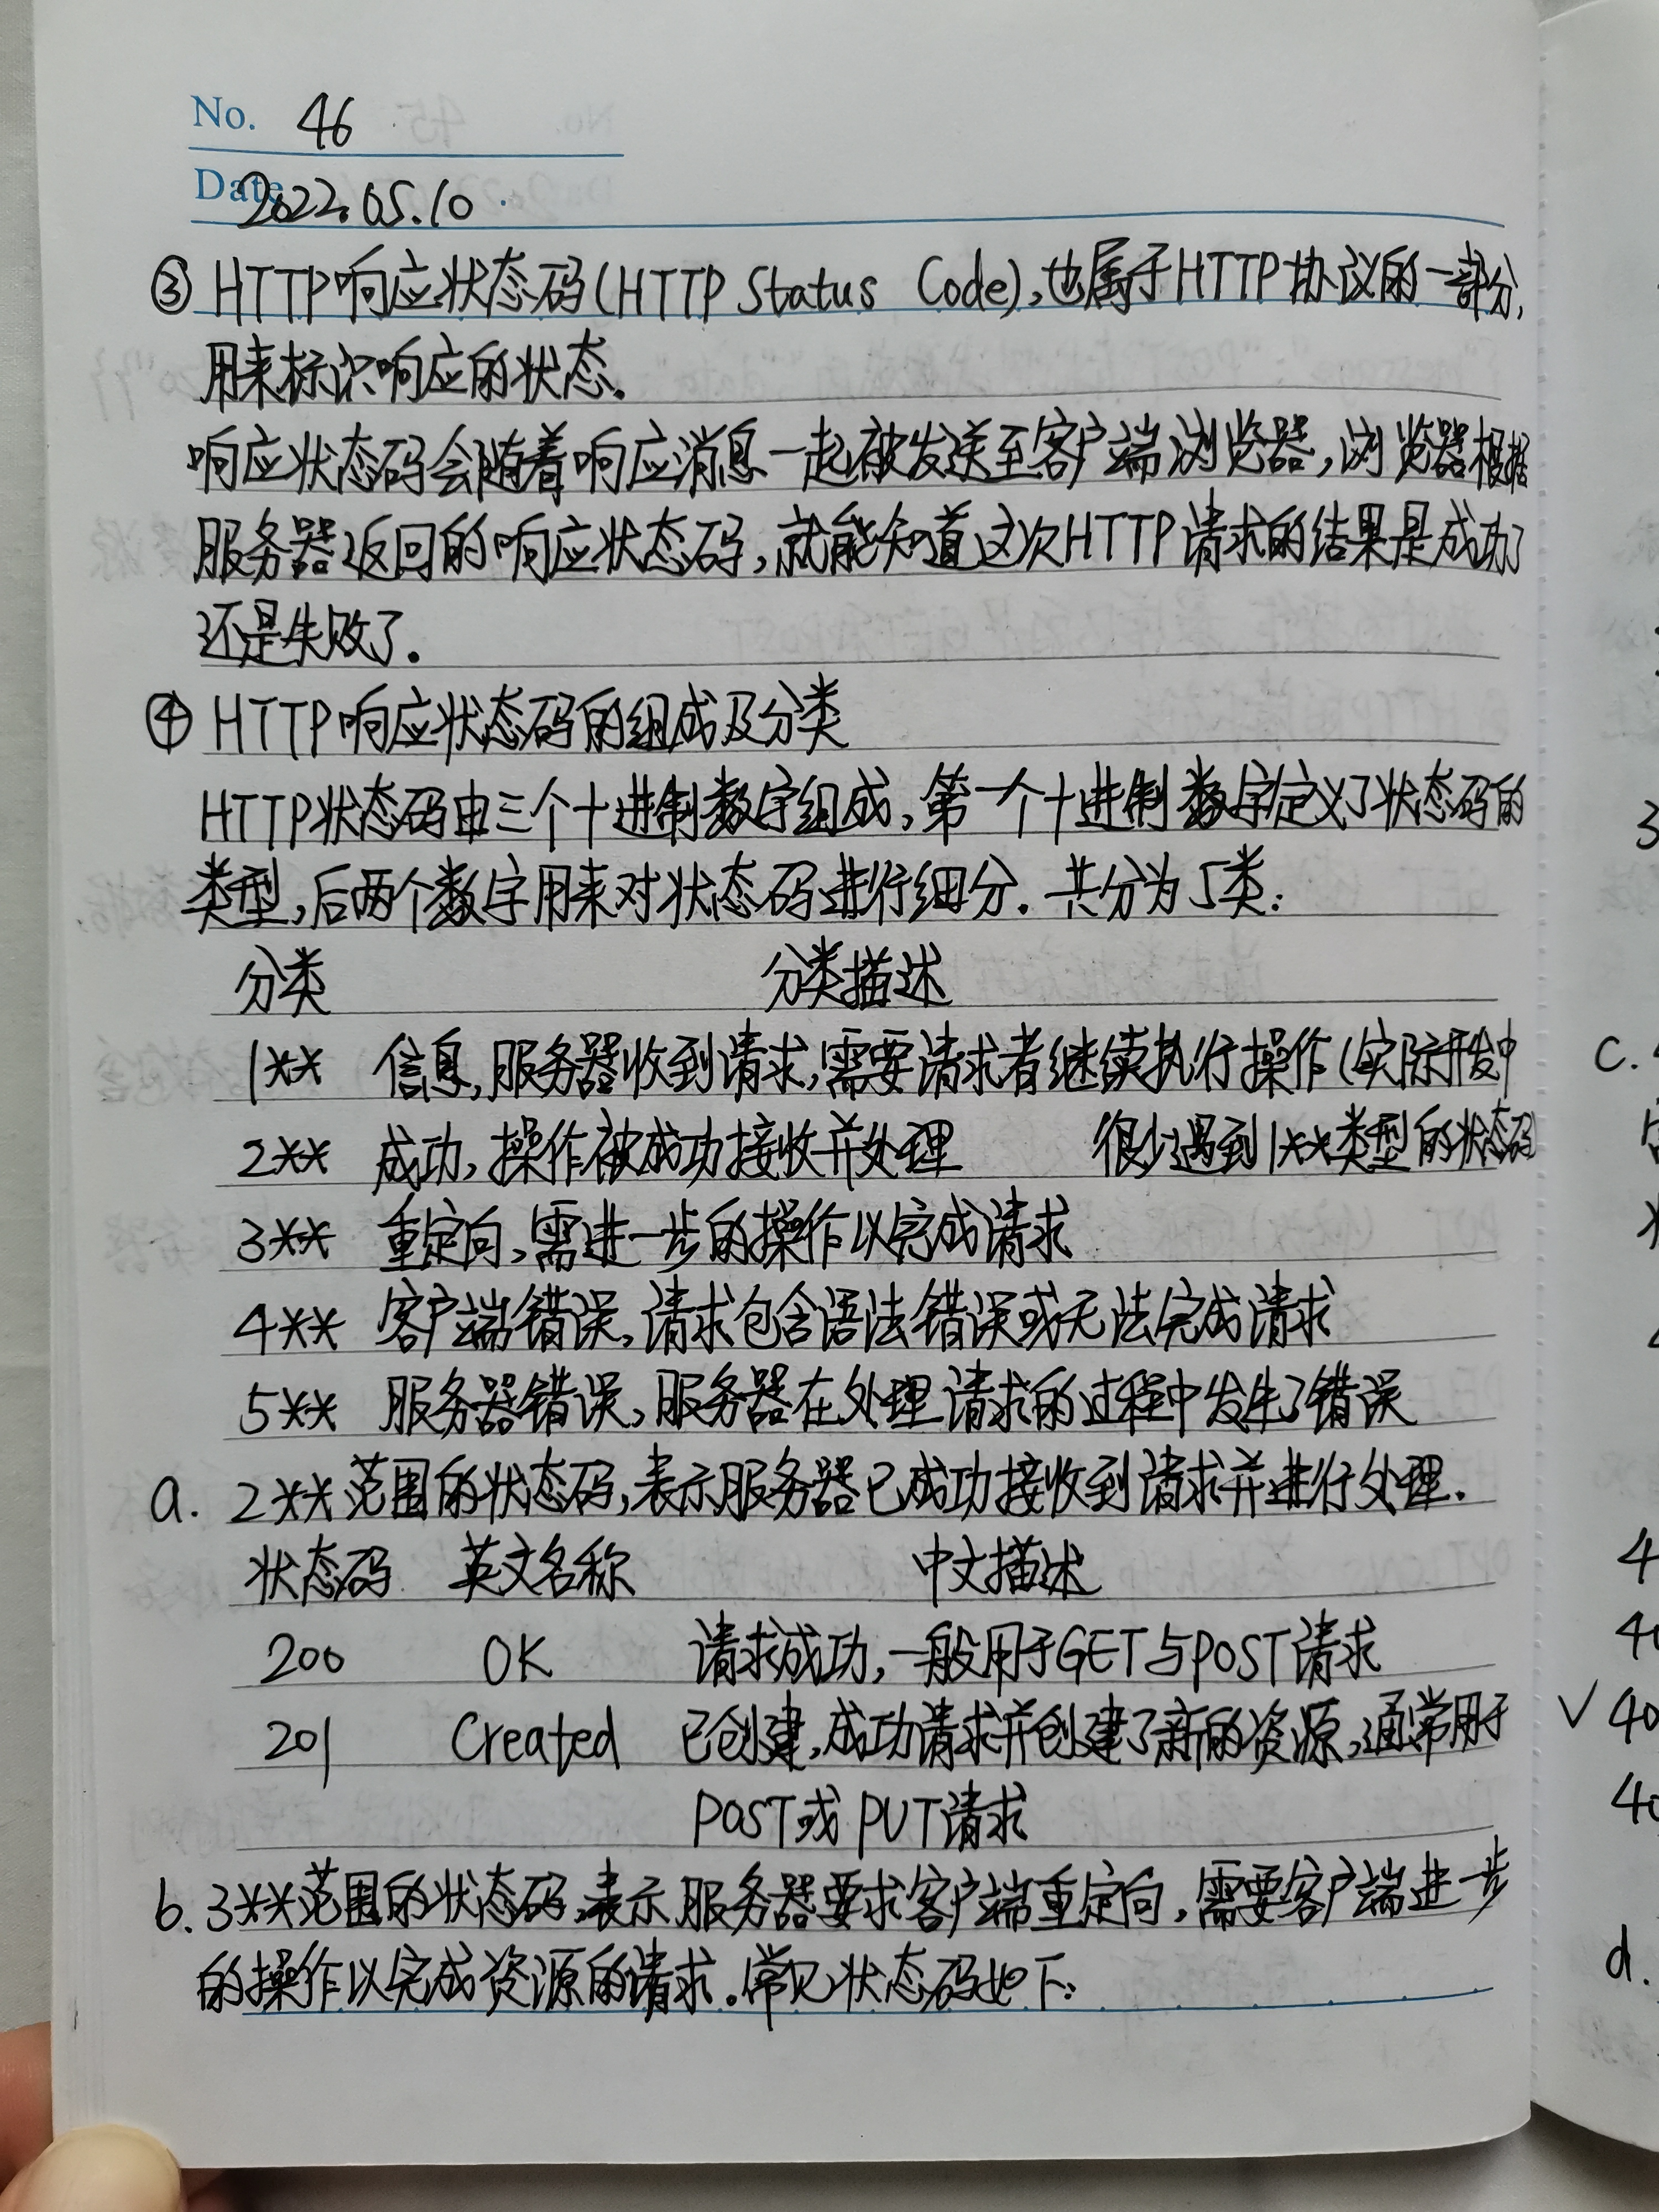 No. 46
Date 2022.05.10
③ HTTP响应状态码(HTTP Status Code),也属于HTTP协议的一部分,
用来标识响应的状态.
响应状态码会随着响应消息一起被发送至客户端浏览器,浏览器根据
服务器返回的响应状态码,就能知道这次HTTP请求的结果是成功了
还是失败了.
④ HTTP响应状态码的组成及分类
HTTP状态码由三个十进制数字组成,第一个十进制数字定义了状态码的
类型,后两个数字用来对状态码进行细分.共分为5类:
分类 分类描述
1** 信息,服务器收到请求,需要请求者继续执行操作(实际开发中
2** 成功,操作被成功接收并处理 很少遇到1**类型的状态码
3** 重定向,需进一步的操作以完成请求
4** 客户端错误,请求包含语法错误或无法完成请求
5** 服务器错误,服务器在处理请求的过程中发生了错误
a. 2**范围的状态码,表示服务器已成功接收到请求并进行处理.
状态码 英文名称 中文描述
200 OK 请求成功,一般用于GET与POST请求
201 Created 已创建,成功请求并创建了新的资源,通常用于
POST或PUT请求
b. 3**范围的状态码,表示服务器要求客户端重定向,需要客户端进一步
的操作以完成资源的请求.常见状态码如下:
3
c.
4
40
√ 40
40
d.